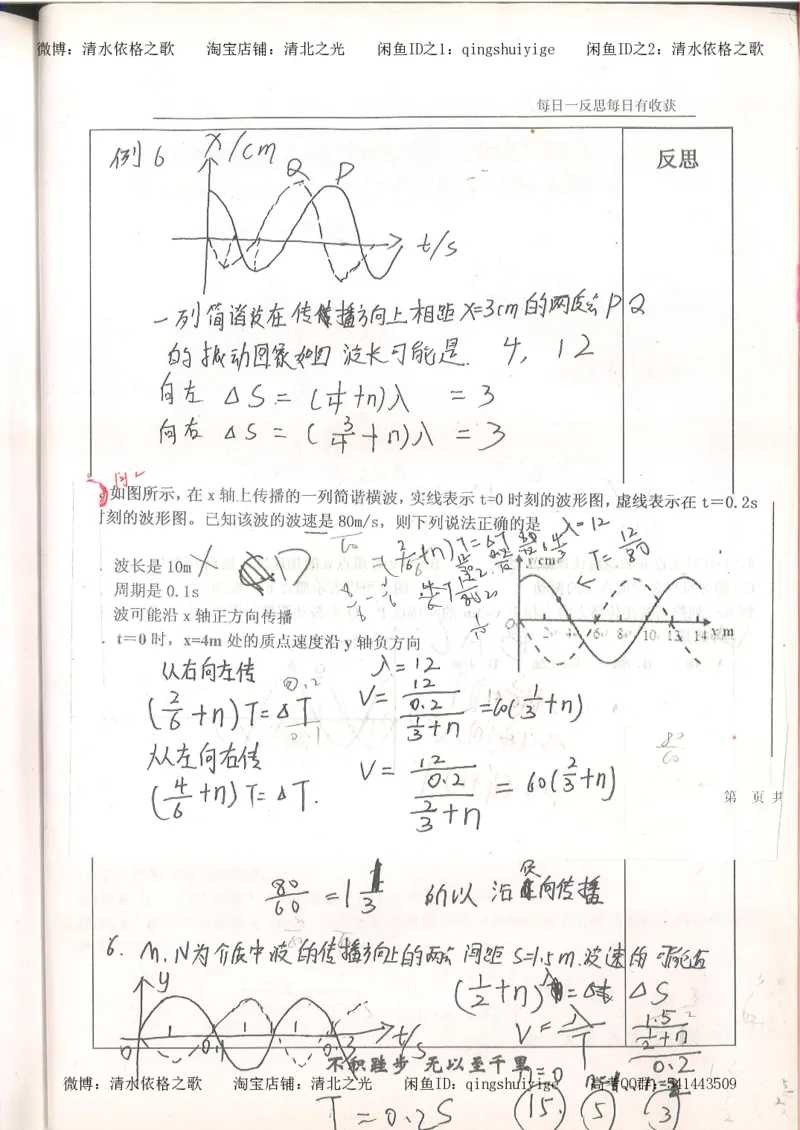 微博：清水依格之歌 淘宝店铺：清北之光 闲鱼ID之1：qingshuiyige 闲鱼ID之2：清水依格之歌
每日一反思每日有收获
例6 x/cm
反思
Q P
t/s
一列简谐波在传播方向上相距x=3cm的两质点PQ
的振动图象如图 波长可能是 4, 12
向左 ΔS = (1/4+n)λ = 3
向右 ΔS = (3/4+n)λ = 3
如图所示，在 x 轴上传播的一列简谐横波，实线表示 t=0 时刻的波形图，虚线表示在 t＝0.2s
时刻的波形图。已知该波的波速是 80m/s，则下列说法正确的是
λ=12
T=12/80
波长是 10m × D
y/cm
周期是 0.1s
波可能沿 x 轴正方向传播
0 2 4 6 8 10 12 14 x/m
t＝0 时，x=4m 处的质点速度沿 y 轴负方向
从右向左传 λ=12
(2/6+n)T=ΔT V=12/(0.2/(1/3+n))=60(1/3+n)
从左向右传
(4/6+n)T=ΔT. V=12/(0.2/(2/3+n))=60(2/3+n)
80/60
第 页 共
80/60=1 1/3 所以沿负向传播
6. M、N为介质中波的传播方向上的两点 间距 S=1.5m.波速的可能值
y
(1/2+n)λ=ΔS
0 0.1 0.3 t/s
V=λ/T
1.5/(1/2+n)/0.2
不积跬步 无以至千里
n=0
微博：清水依格之歌 淘宝店铺：清北之光 闲鱼ID：qingshuiyige 高考QQ群：541443509
T=0.2S 15. 5 3